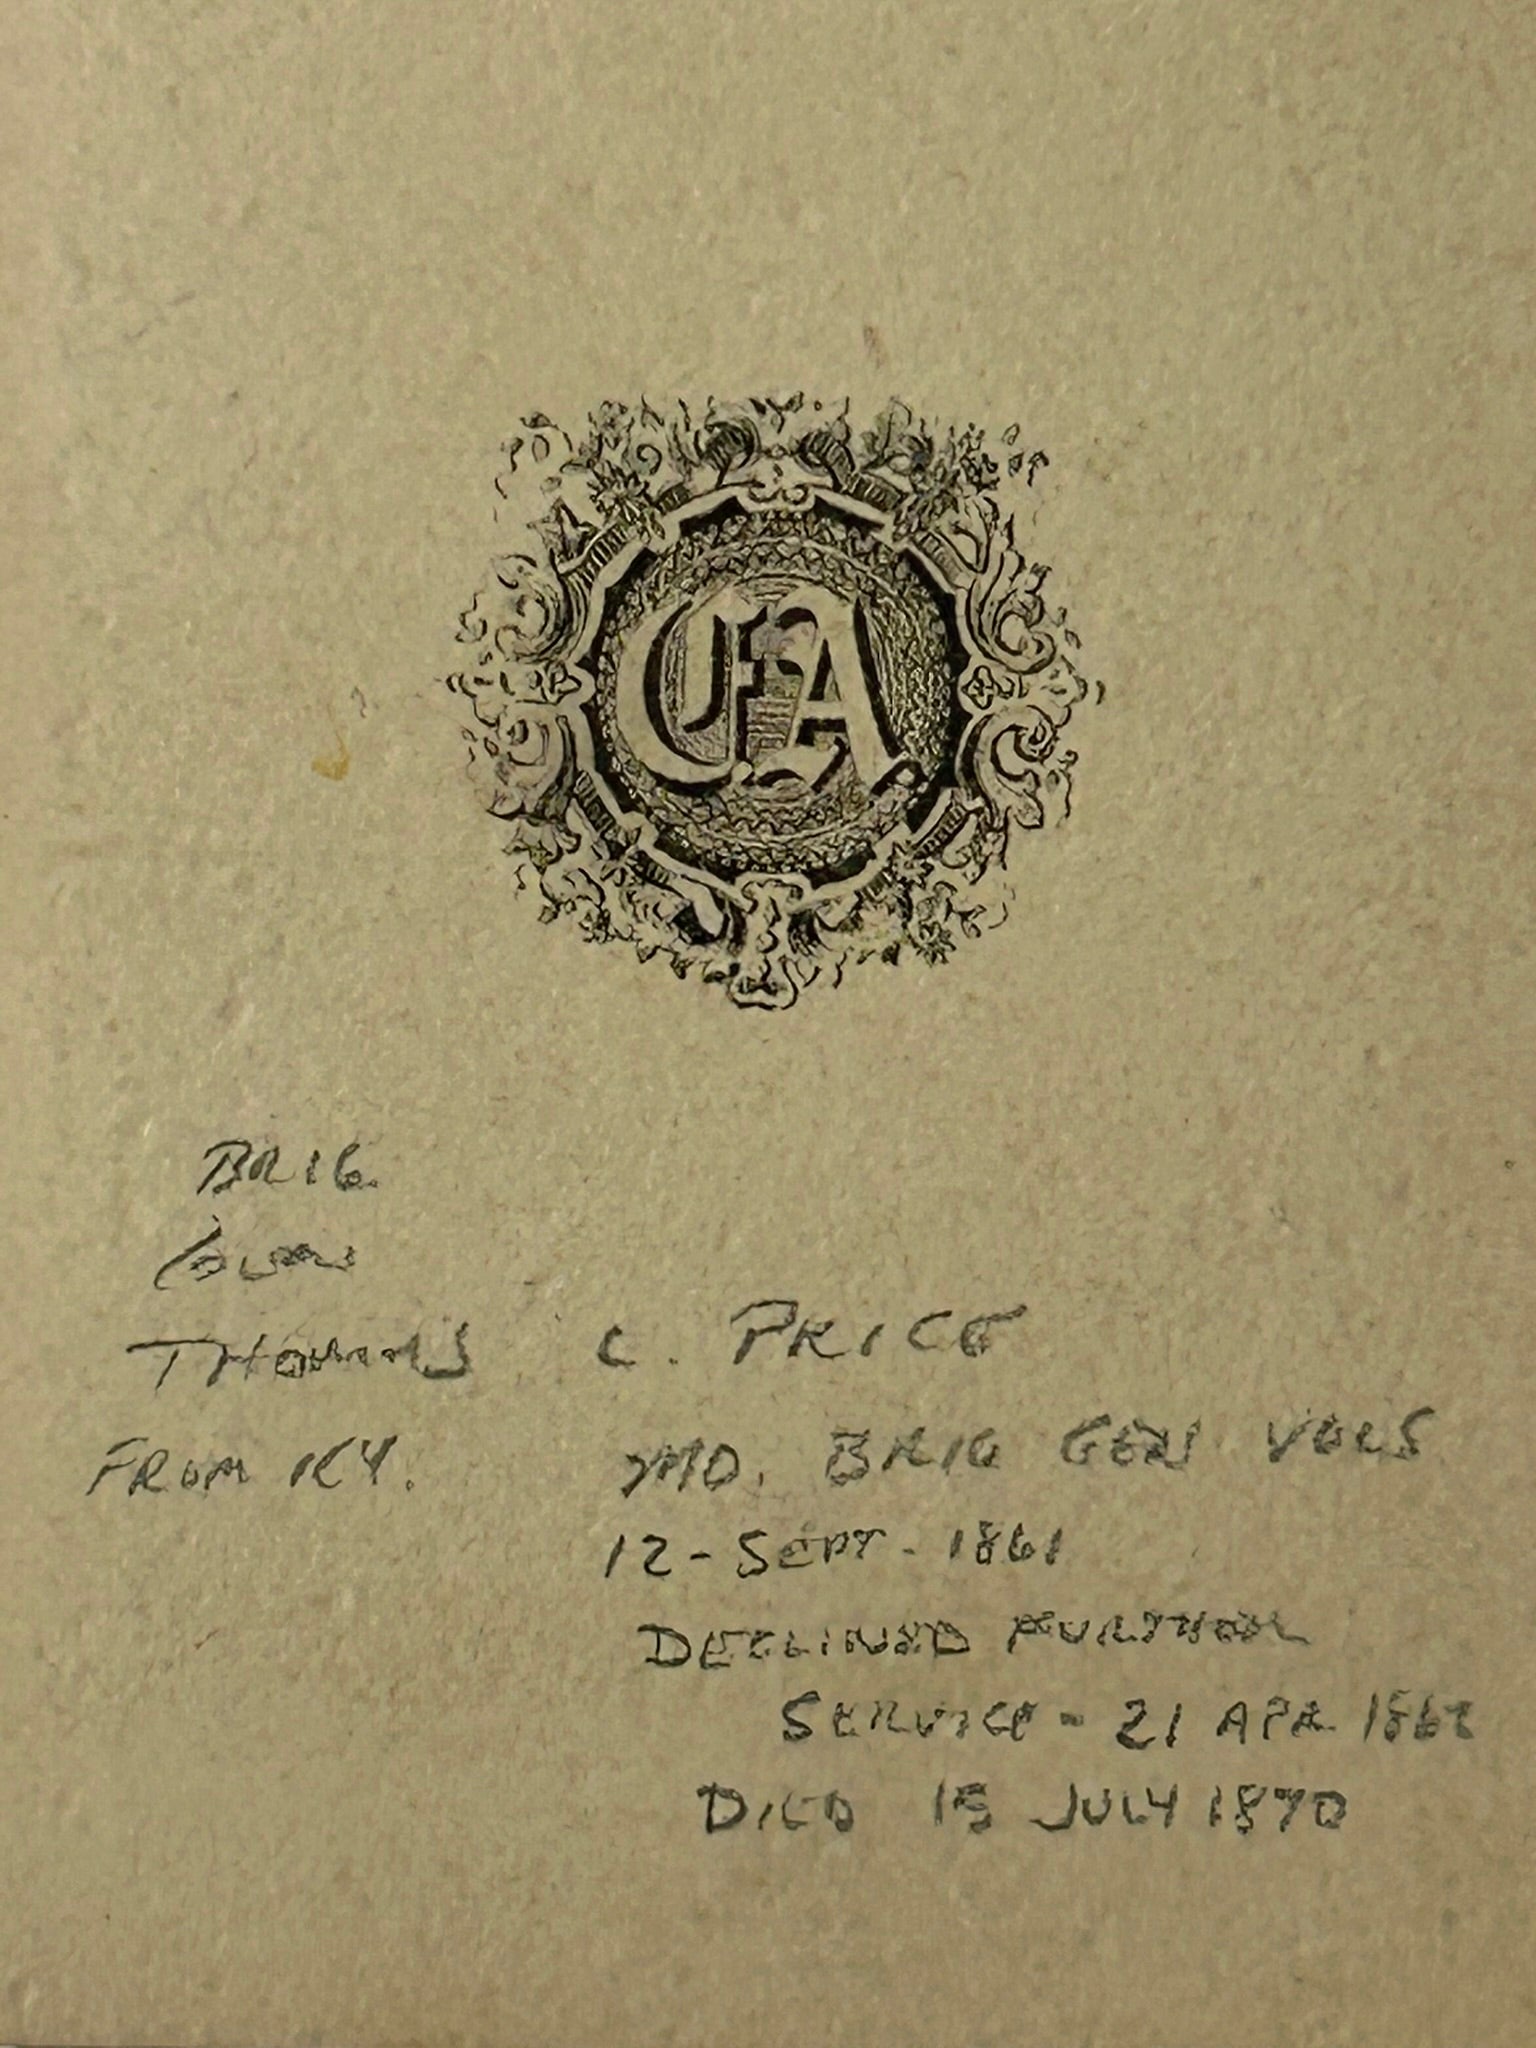 CA
BRIG.
THOMAS C. PRICE
FROM KY. MO. BRIG GEN VOLS
12 - SEPT - 1861
DECLINED FURTHER
SERVICE - 21 APR 1862
DIED 15 JULY 1870